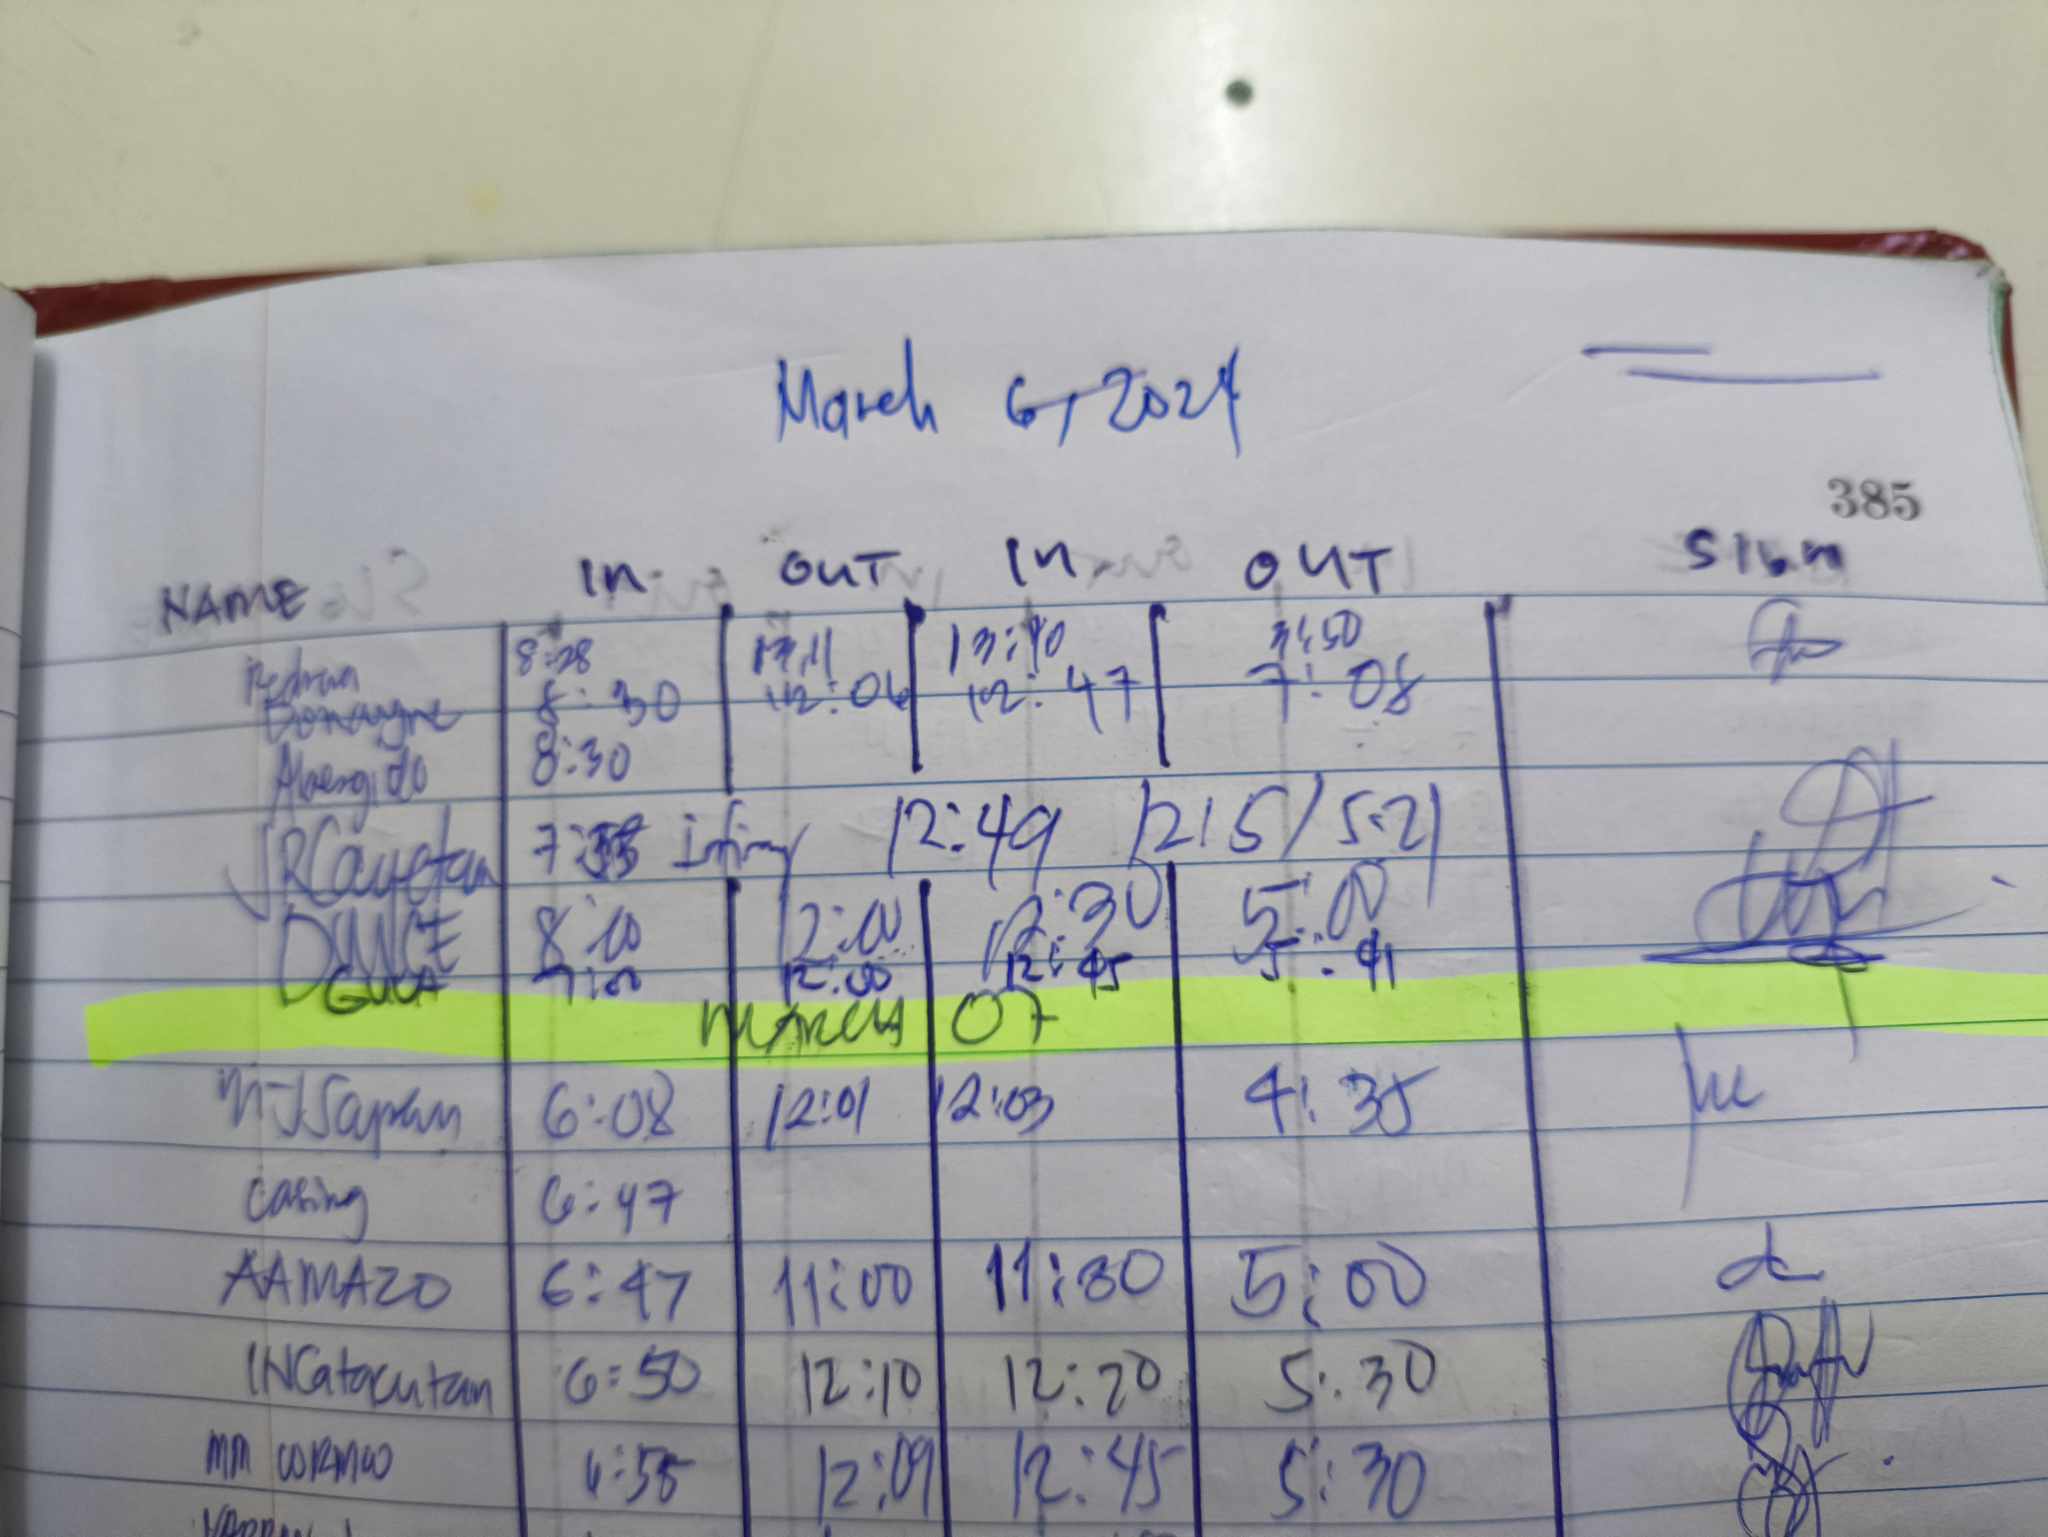 March 6, 2024
385
NAME IN OUT IN OUT SIGN
8:28 13:11 13:40 3:50
8:30 12:06 12:47 7:08
8:30
JRCayetan 7:38 12:49 1215/5:21
DWCE 8:00 12:00 12:30 5:00
GUCA 7:00 12:00 12:45 5:41
MARCH 07
MJSapan 6:08 12:01 12:03 4:35
Casing 6:47
AAMAZO 6:47 11:00 11:30 5:00
INCatacutan 6:50 12:10 12:20 5:30
MM 6:55 12:09 12:45 5:30